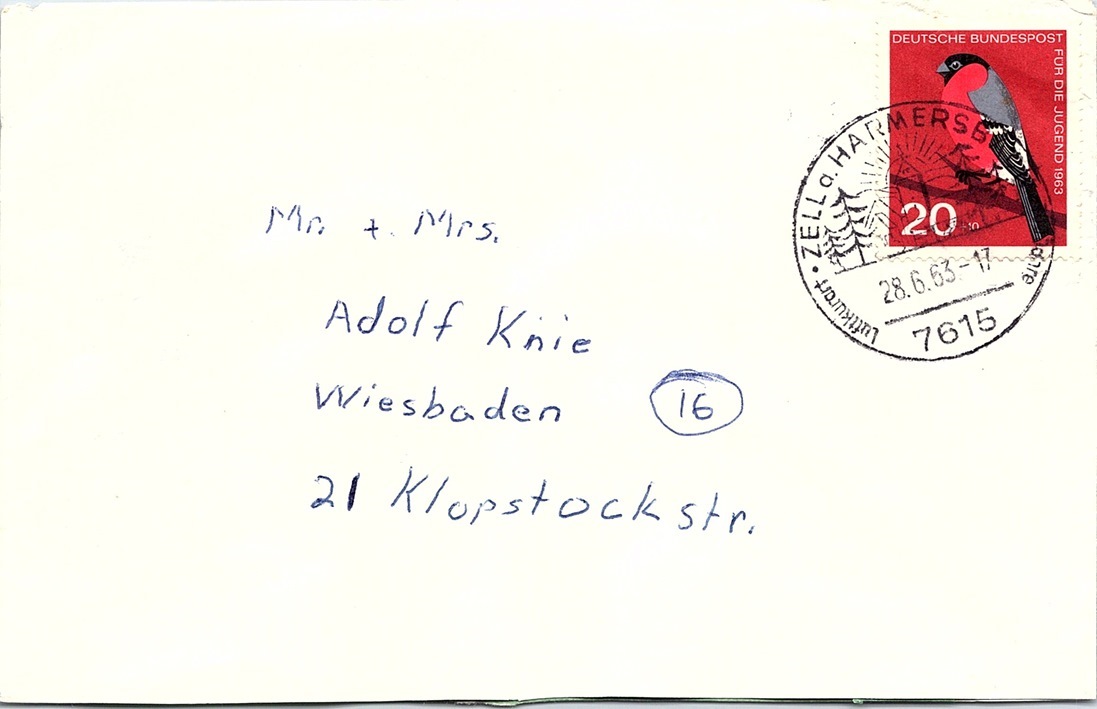 DEUTSCHE BUNDESPOST
FÜR DIE JUGEND 1963
20 +10
ZELL a. HARMERSB
28.6.63-17
7615
Luftkurort
Mr. + Mrs.
Adolf Knie
Wiesbaden 16
21 Klopstockstr.